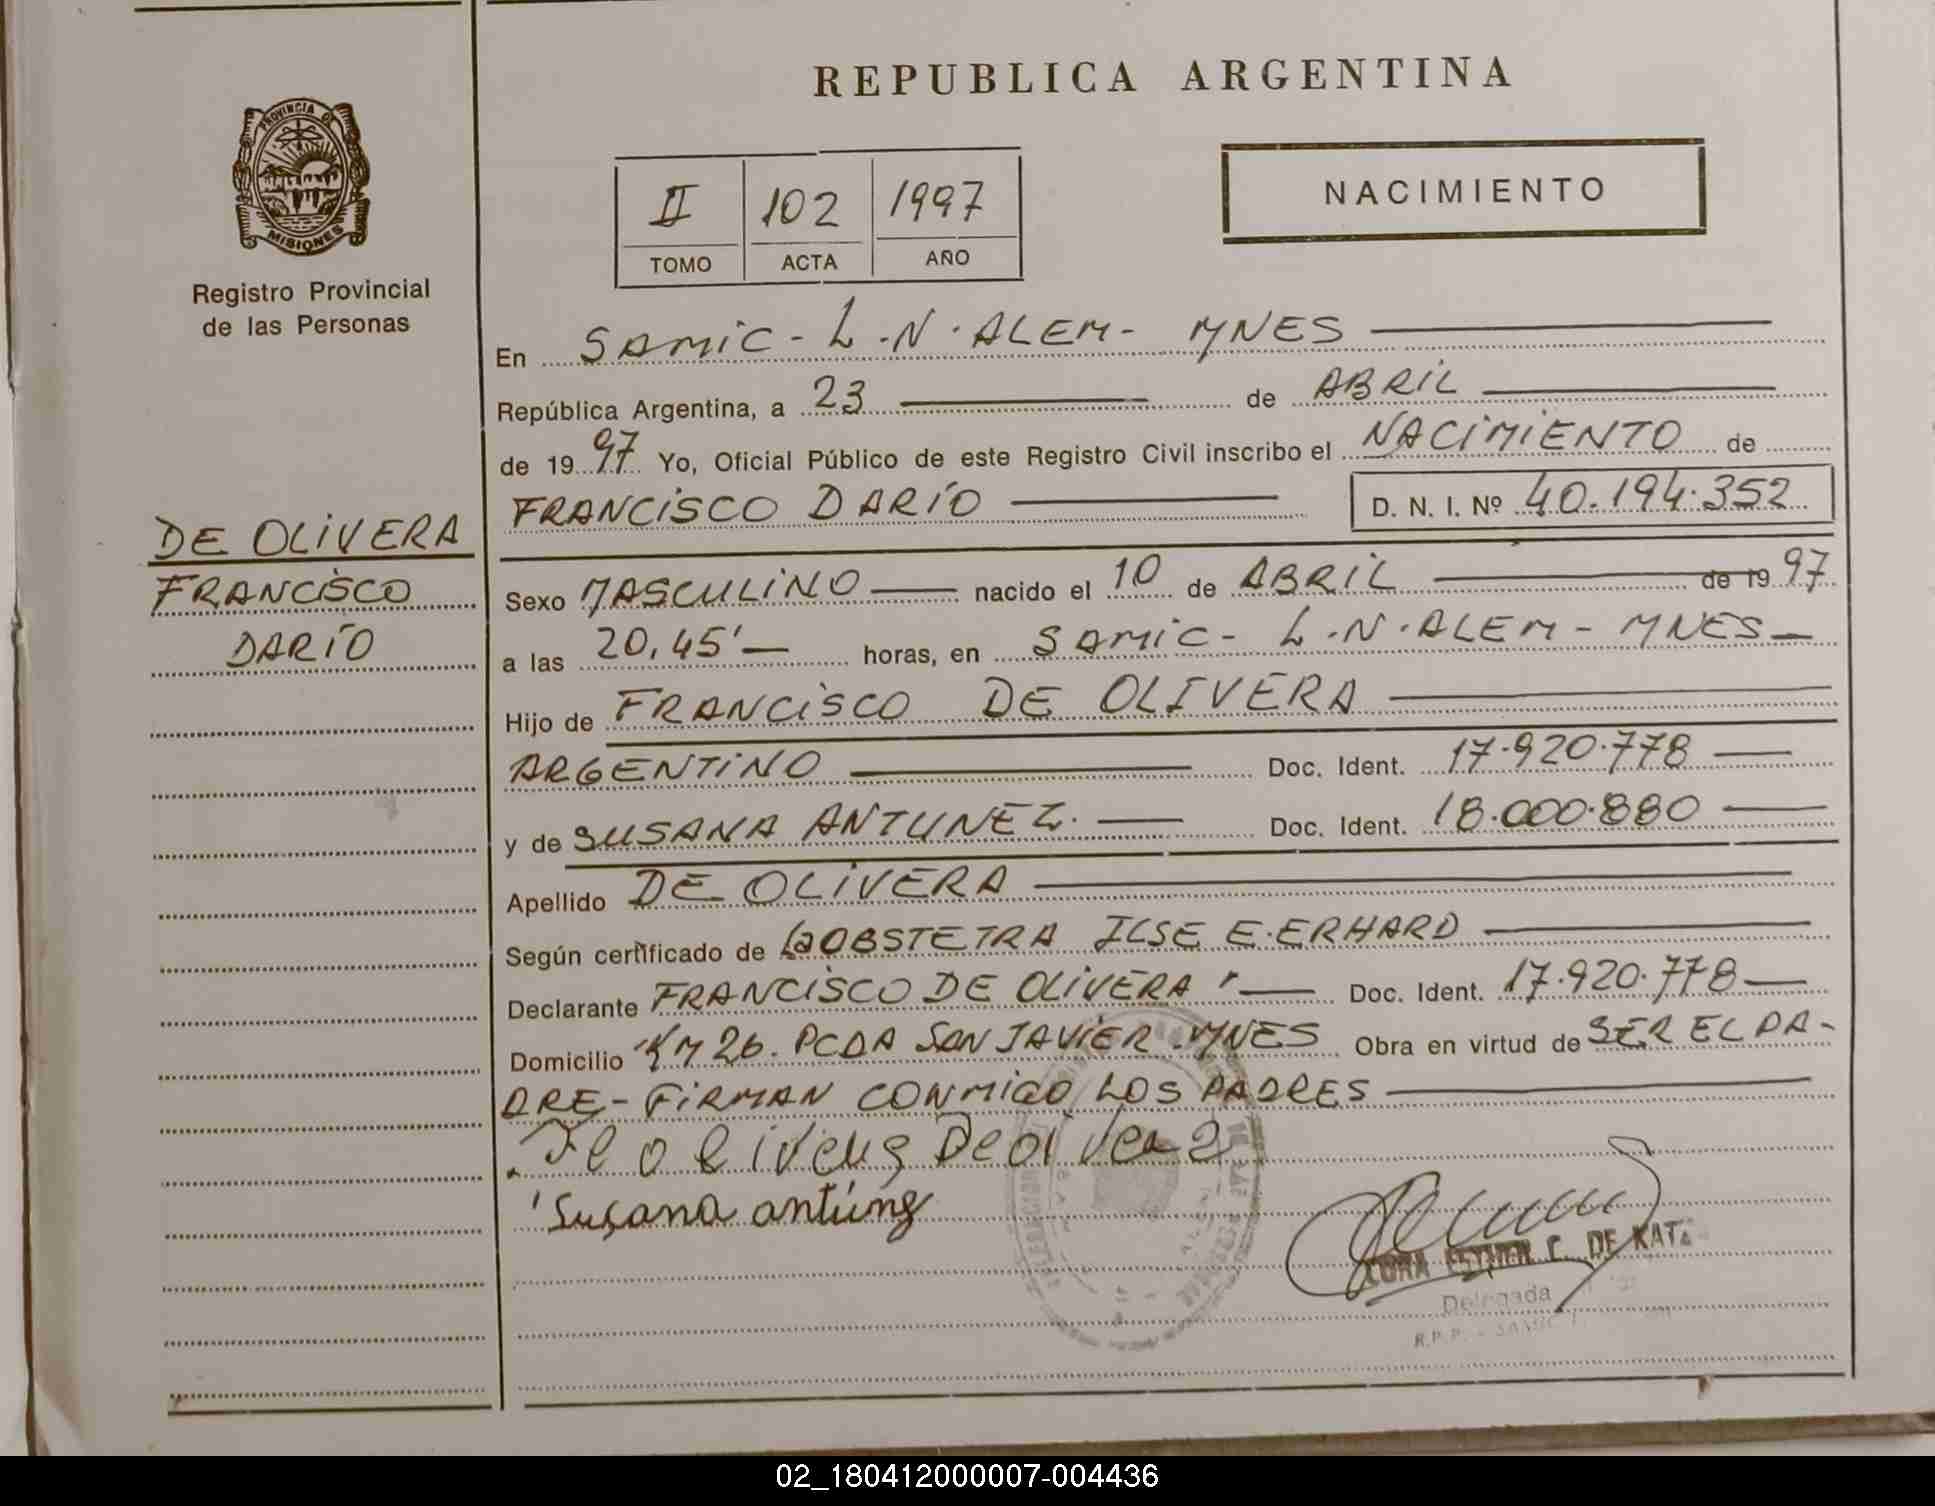 REPUBLICA ARGENTINA
PROVINCIA DE
MISIONES
Registro Provincial
de las Personas
II 102 1997
TOMO ACTA AÑO
NACIMIENTO
DE OLIVERA
FRANCISCO
DARÍO
En SAMIC - L.N. ALEM - MNES
República Argentina, a 23 de ABRIL
de 1997 Yo, Oficial Público de este Registro Civil inscribo el NACIMIENTO de
FRANCISCO DARÍO D. N. I. Nº 40.194.352
Sexo MASCULINO nacido el 10 de ABRIL de 1997
a las 20,45' horas, en SAMIC - L.N. ALEM - MNES
Hijo de FRANCISCO DE OLIVERA
ARGENTINO Doc. Ident. 17.920.778
y de SUSANA ANTUNEZ. Doc. Ident. 18.000.880
Apellido DE OLIVERA
Según certificado de LA OBSTETRA ILSE E. ERHARD
Declarante FRANCISCO DE OLIVERA Doc. Ident. 17.920.778
Domicilio KM 26. PCDA SAN JAVIER. MNES Obra en virtud de SER EL PA-
DRE - FIRMAN CONMIGO LOS PADRES
Susana antúnez
ESTHER C. DE KAT
Delegada
R.P.P. - SAMIC
02_180412000007-004436